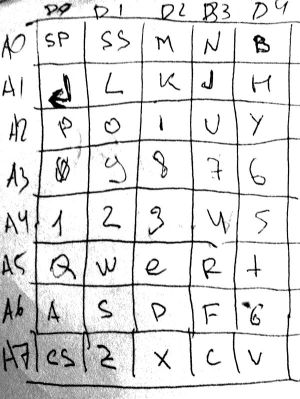 D0 D1 D2 D3 D4
A0 SP SS M N B
A1 ↲ L K J H
A2 P O I U Y
A3 0 9 8 7 6
A4 1 2 3 4 5
A5 Q W e R t
A6 A S D F G
A7 CS Z X C V